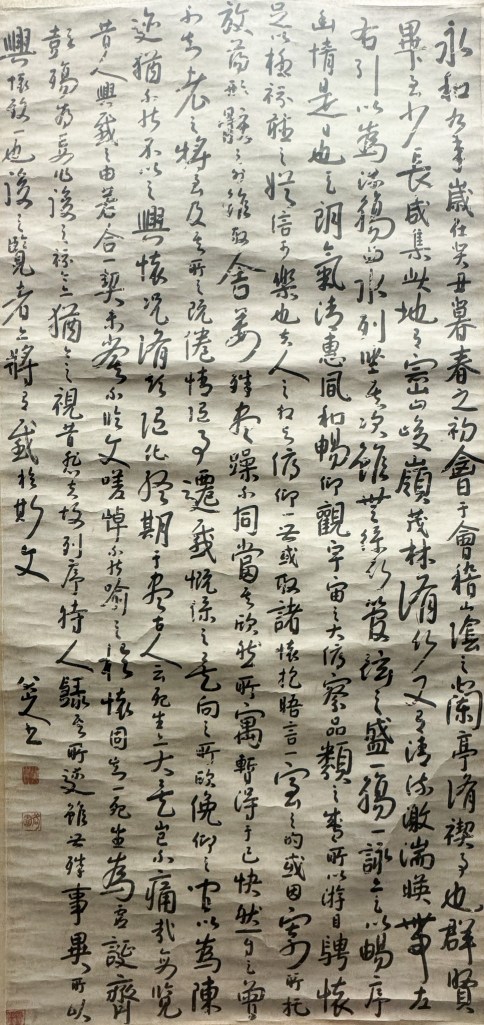 永和九年歲在癸丑暮春之初會于會稽山陰之蘭亭脩禊事也群賢
畢至少長咸集此地有崇山峻嶺茂林脩竹又有清流激湍暎帶左
右引以爲流觴曲水列坐其次雖無絲竹管弦之盛一觴一詠亦足以暢序
幽情是日也天朗氣清惠風和暢仰觀宇宙之大俯察品類之盛所以遊目騁懷
足以極視聽之娛信可樂也夫人之相與俯仰一世或取諸懷抱晤言一室之內或因寄所託
放蕩形骸之外雖取舍萬殊靜躁不同當其欣然所寓暫得于己快然自足曾
不知老之將至及其所之既倦情隨事遷感慨係之矣向之所欣俛仰之間以爲陳
迹猶不能不以之興懷況脩短隨化終期于盡古人云死生亦大矣豈不痛哉每覽
昔人興感之由若合一契未嘗不臨文嗟悼不能喻之於懷固知一死生爲虛誕齊
彭殤爲妄作後之視今亦猶今之視昔悲夫故列序時人錄其所述雖世殊事異所以
興懷致一也後之覽者亦將有感於斯文